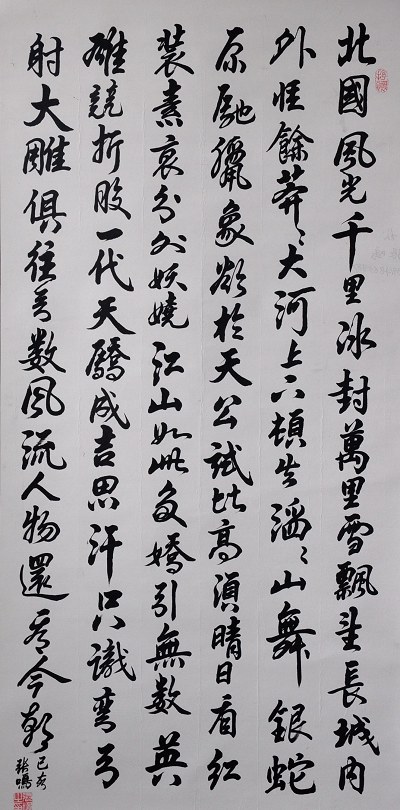 北國風光千里冰封萬里雪飄望長城内
外惟餘莽〻大河上下頓失滔〻山舞銀蛇
原馳臘象欲於天公試比高須晴日看紅
裝素裹分外妖嬈江山如此多嬌引無數英
雄競折腰一代天驕成吉思汗只識彎弓
射大雕俱往矣數風流人物還看今朝
己亥
張鳴